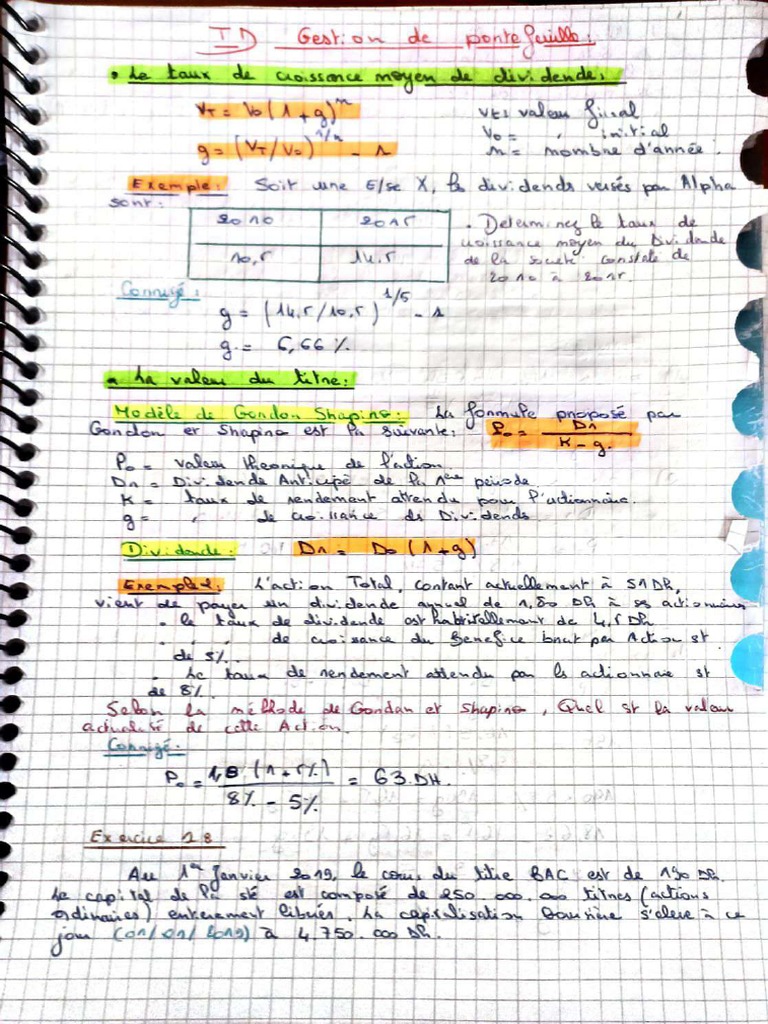 TD Gestion de portefeuille:
• Le taux de croissance moyen de dividende:
VT = V0 (1 + g)^n
VT: valeur final
V0 = " initial
g = (VT/V0)^1/n - 1
n = nombre d'année.
Exemple: Soit une E/se X, les dividends versés par Alpha
sont:
2010 2015
10,5 14,5
• Determinez le taux de
croissance moyen du Dividende
de la societé constate de
2010 à 2015.
Corrigé:
g = (14,5/10,5)^1/5 - 1
g = 6,66 %
• La valeur du titre:
Modèle de Gordon Shapino: La formule proposé par
Gordon et Shapino est la suivante: P0 = D1 / K - g.
P0 = valeur theorique de l'action
D1 = Dividende Anticipé de la 1ère periode.
K = taux de rendement attendu pour l'actionnaire.
g = " de croissance ds Dividends
Dividende: D1 = D0 (1 + g)
Exemple 2: L'action Total, cotant actuellement à 51 Dh,
vient de payer un dividende annuel de 1,80 Dh à ses actionnaires
• le taux de dividende est habituellement de 4,5 Dh
• " " de croissance du Benefice brut par Action st
de 5%.
• Le taux de rendement attendu par ls actionnaire st
de 8%.
Selon la méthode de Gordan et Shapino, Quel st la valeur
actualité de cette Action.
Corrigé:
P0 = 1,8 (1 + 5%) / 8% - 5% = 63 DH.
Exercice 28
Au 1er Janvier 2019, le cours du titre BAC est de 190 Dh.
Le capital de la sté est composé de 250 000.00 titres (actions
ordinaires) enterement liberés. La capitalisation Boursière s'eleve à ce
jour (01/01/2019) à 4.750.000 Dh.